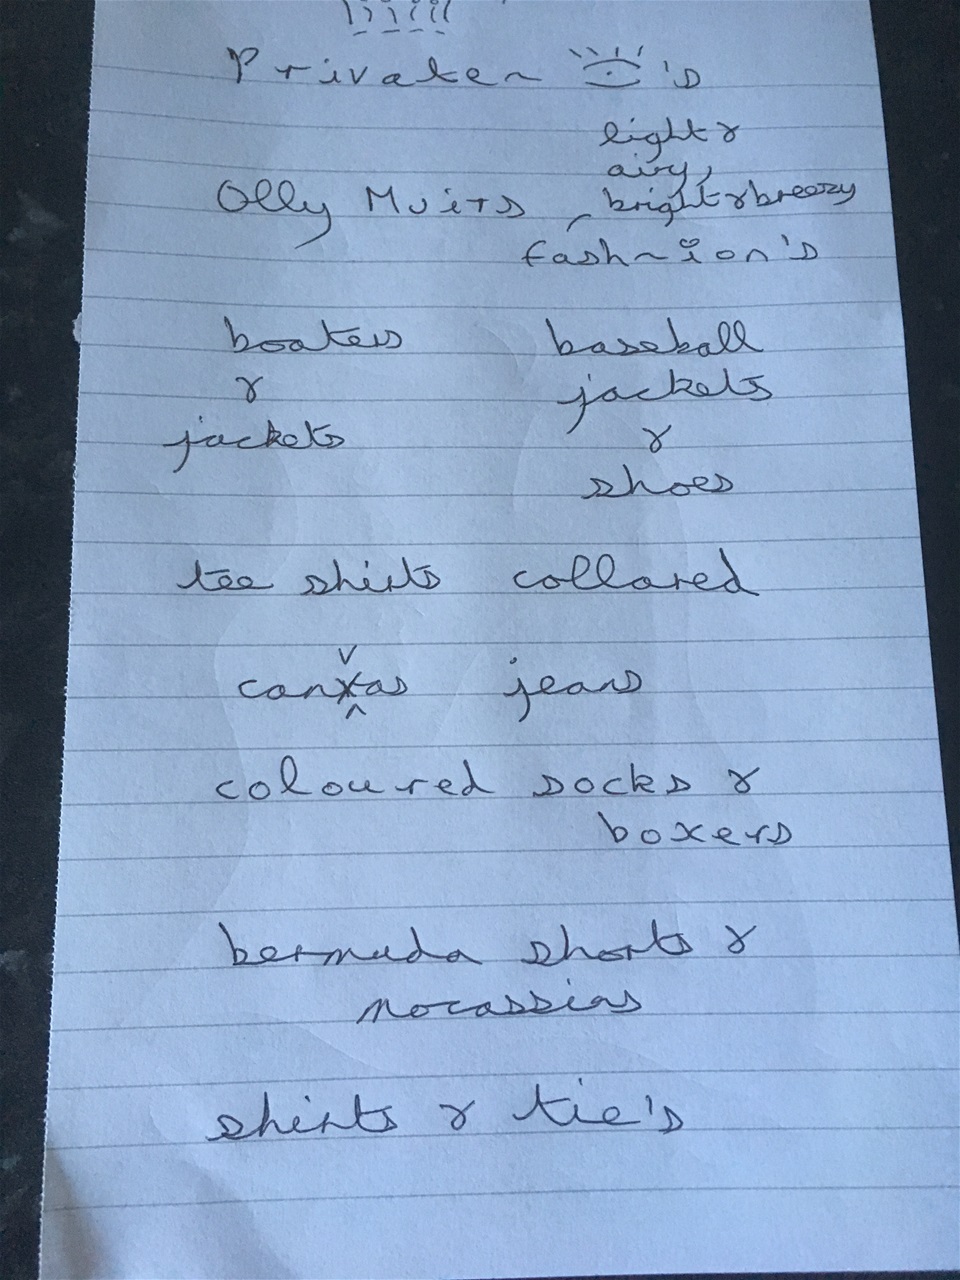 Privater 's
light &
airy,
Olly Muirs, bright & breezy
fash~ion's
boaters baseball
& jackets
jackets &
shoes
tee shirts collared
v
canxas jeans
^
coloured socks &
boxers
bermuda shorts &
mocassins
shirts & tie's